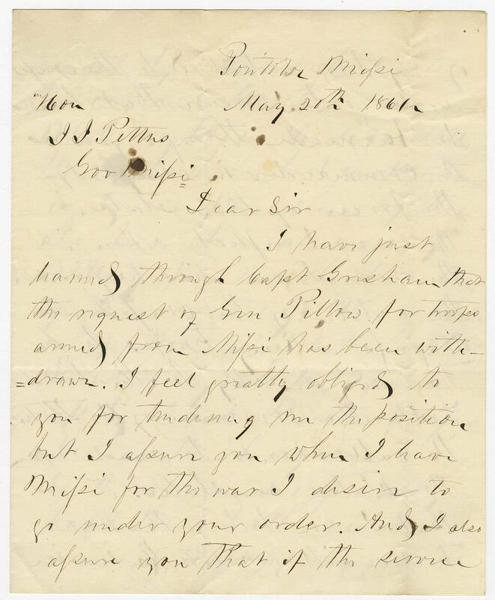 Pontotoc Missi
May 20th 1861
Hon
J J Pettus
Gov Missi
Dear Sir
I have just
learned through Capt Grisham that
the request of Gen Pillow for troops
armed from Missi has been with-
=drawn. I feel greatly obliged to
you for tendering me the position
but I assure you when I leave
Missi for the war I desire to
go under your order. And I also
assure you that if the service